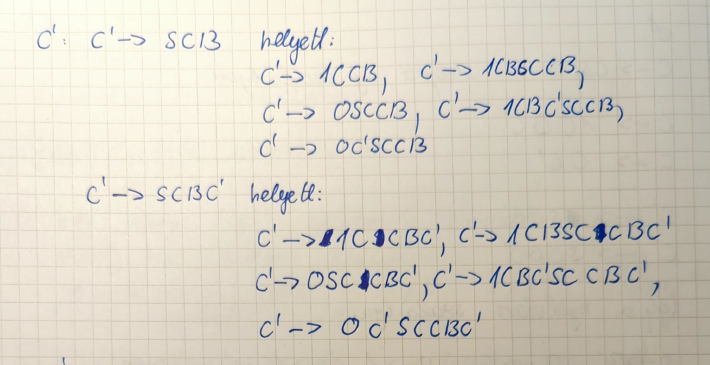 C': C' -> SCB helyett:
C' -> 1CCB, C' -> 1CBSCCB,
C' -> 0SCCB, C' -> 1CBC'SCCB,
C' -> 0C'SCCB
C' -> SCBC' helyett:
C' -> 1CCBC', C' -> 1CBSCCBC'
C' -> 0SCCBC', C' -> 1CBC'SCCBC',
C' -> 0C'SCCBC'